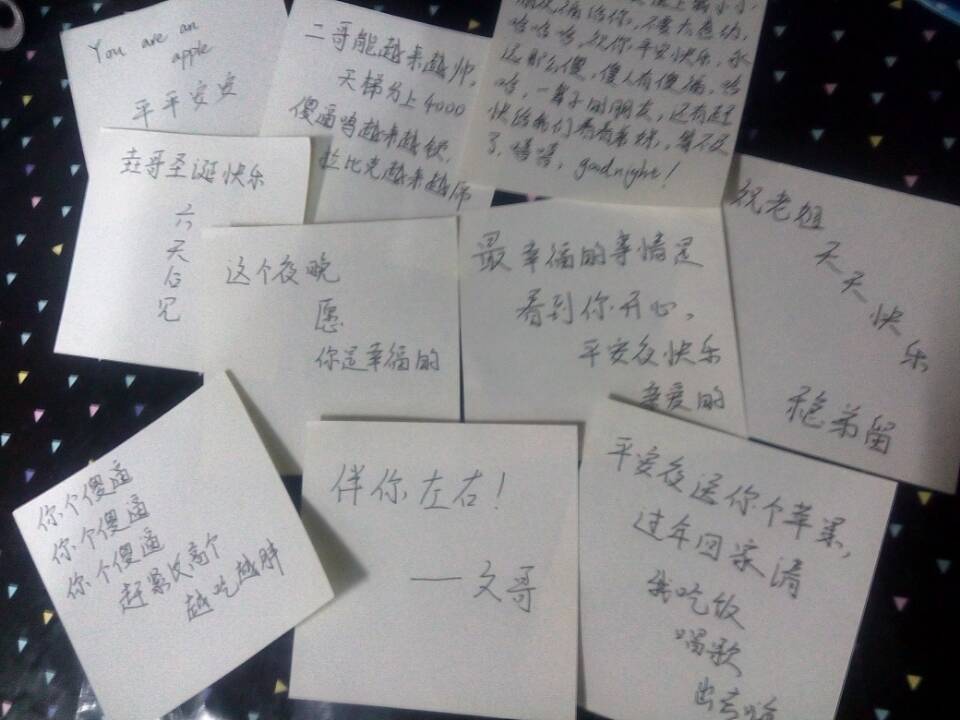 You are an
apple
平平安安
二哥能越来越帅,
天梯分上4000
傻逼鸣越来越铁,
拉比克越来越师
朋友,祝福给你,不要大意的,
哈哈哈,祝你平安快乐,永
远那么傻,傻人有傻福,哈
哈,一辈子的朋友,还有赶
快给我们看看弟妹,等不及
了,嘻嘻,goodnight!
垚哥圣诞快乐
六
天
后
见
这个夜晚
愿
你是幸福的
最幸福的事情是
看到你开心。
平安夜快乐
亲爱的
祝老姐
天
天
快
乐
稳弟留
你个傻逼
你个傻逼
你个傻逼
赶紧长高个
越吃越胖
伴你左右!
——文哥
平安夜送你个苹果,
过年回家请
我吃饭
唱歌